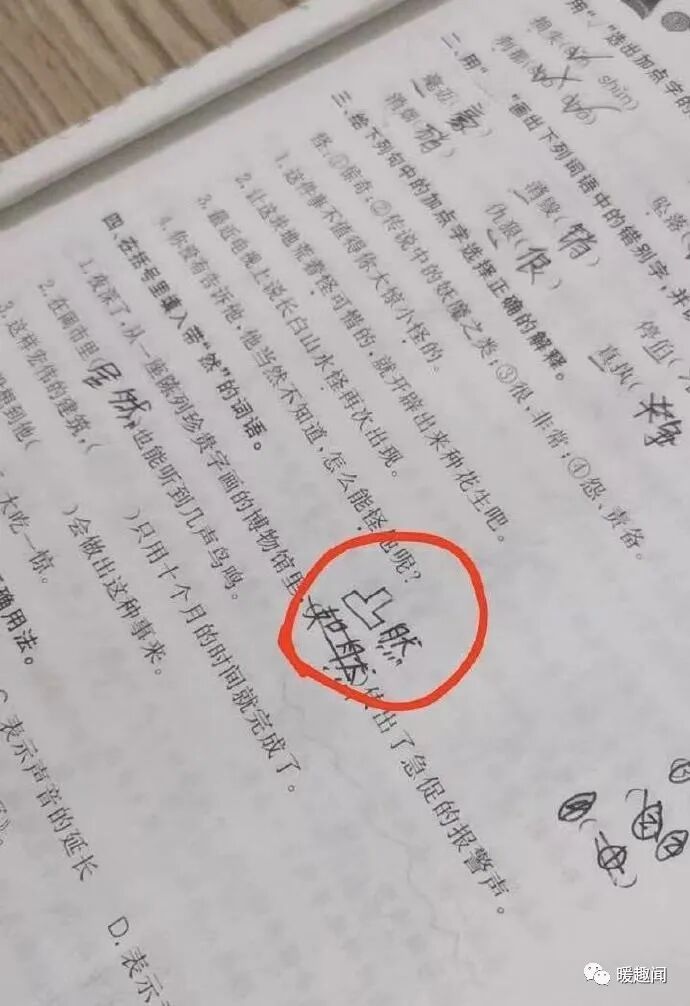 用“✓”选出加点字的
损失(    shǔn)
二、用“    ”画出下列词语中的错别字,并
坠落(
毫(豪)
消(销)
消毁(销)
仇狠(很)
停值(
三、给下列句中的加点字选择正确的解释。
怪:①惊奇;②传说中的妖魔之类;③很,非常;④怨、责备。
1.这件事不值得你大惊小怪的。
2.让这块地荒着怪可惜的,就开辟出来种花生吧。
3.最近电视上说长白山水怪再次出现。
4.你没有告诉他,他当然不知道,怎么能怪他呢?
四、在括号里填入带“然”的词语。
1.夜深了,从一座陈列珍贵字画的博物馆里,(凸然)传出了急促的报警声。
2.在闹市里(居然)也能听到几声鸟鸣。
3.这样宏伟的建筑,(        )只用十个月的时间就完成了。
想到他(        )会做出这种事来。
大吃一惊。
确用法。
C.表示声音的延长
D.表示
暖趣闻